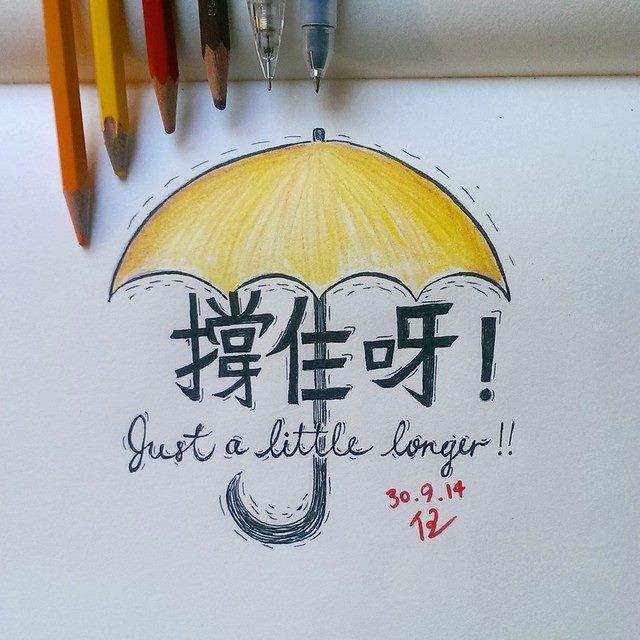 撐住呀!
Just a little longer!!
30.9.14